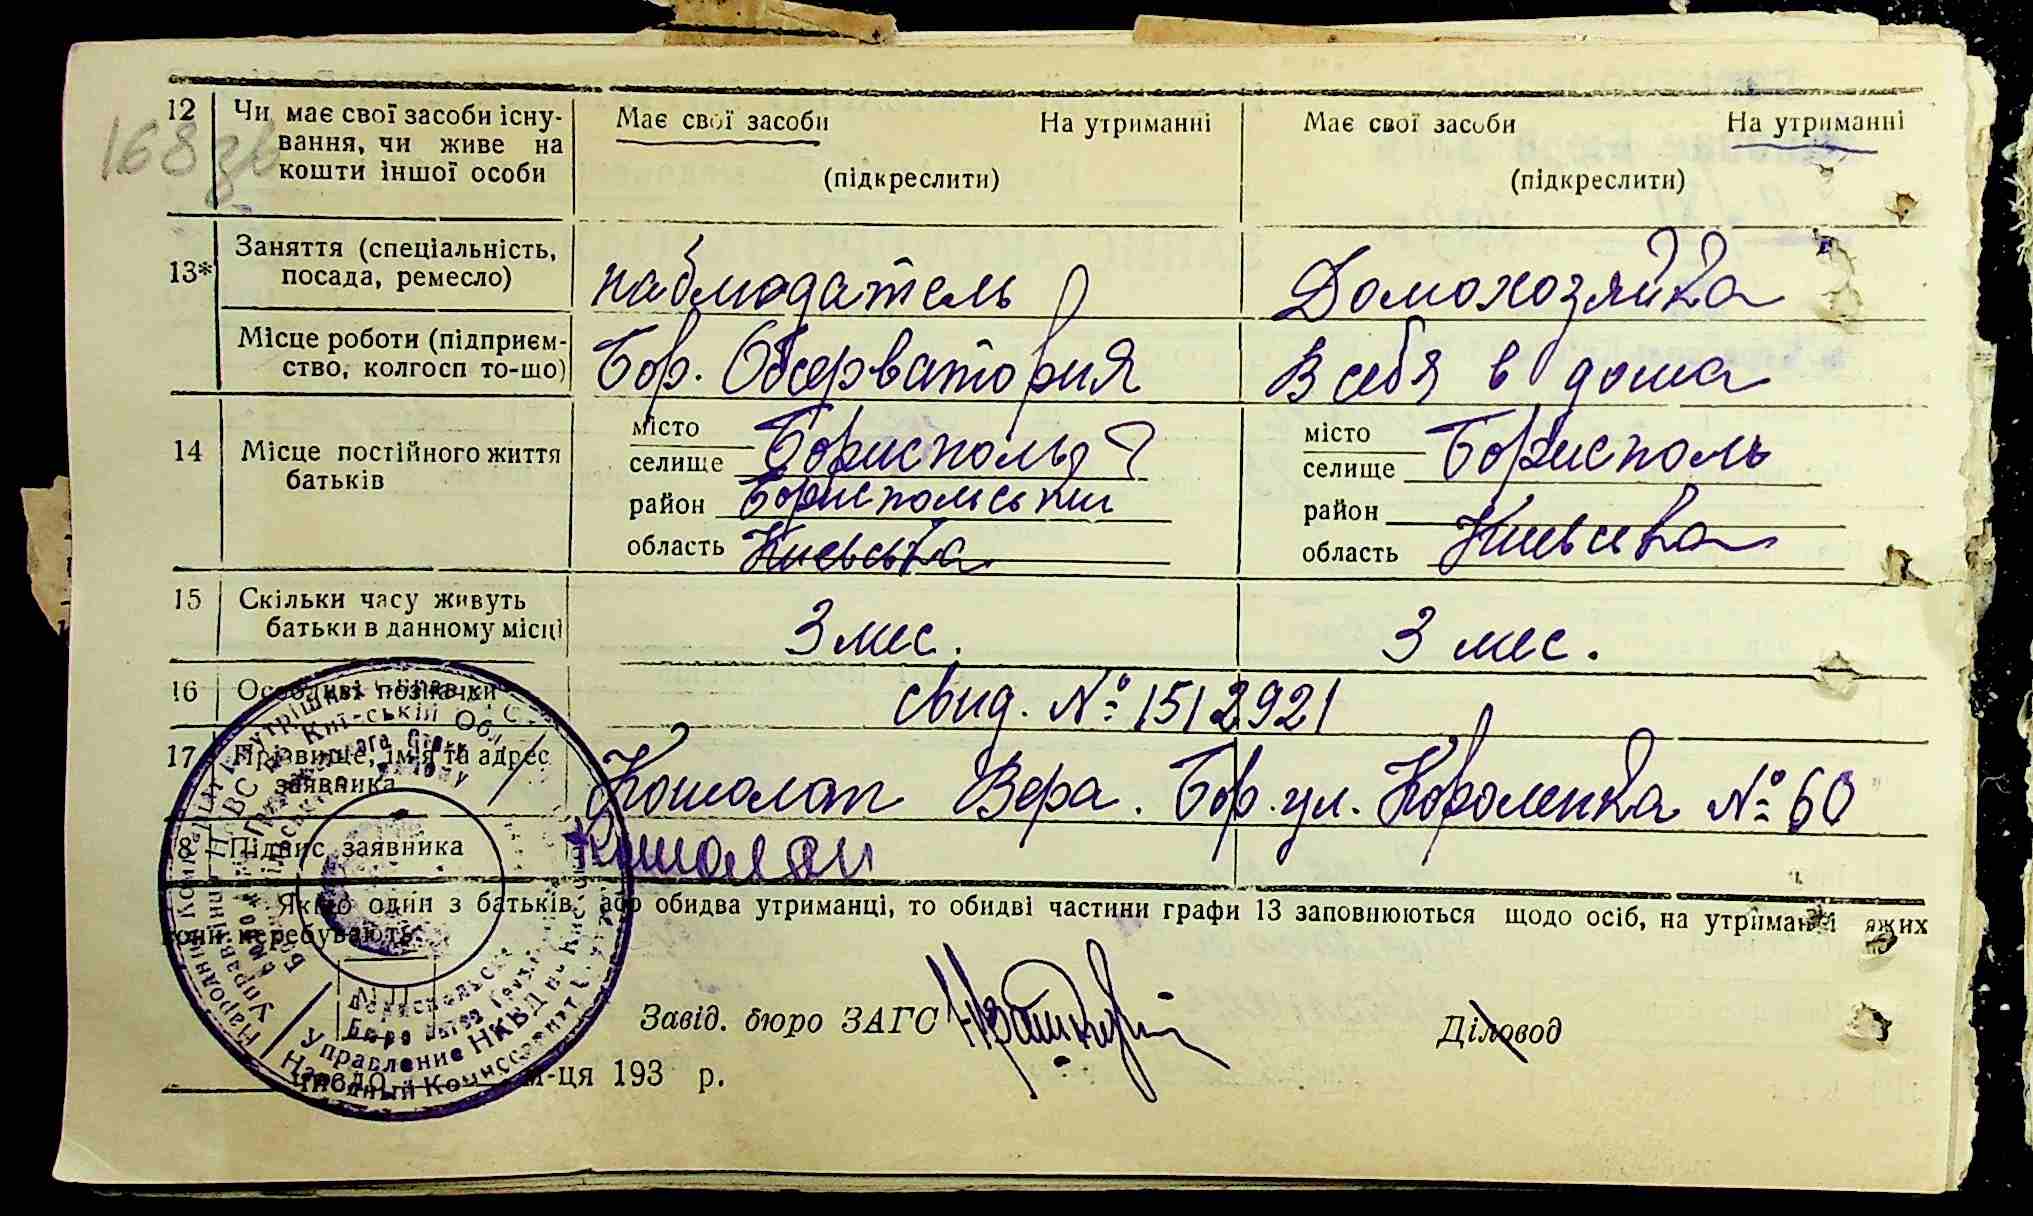 168 зв
12 Чи має свої засоби існу- Має свої засоби На утриманні Має свої засоби На утриманні
вання, чи живе на
кошти іншої особи (підкреслити) (підкреслити)
Заняття (спеціальність,
13* посада, ремесло) наблюдатель Домохозяйка
Місце роботи (підприєм-
ство, колгосп то-що) Бор. Обсерватория В себя в дома
14 Місце постійного життя
батьків
місто
селище Борисполь місто
селище Борисполь
район Бориспольский район
область Киевська область Киевсека
15 Скільки часу живуть
батьки в данному місці 3 мес. 3 мес.
16 Особливі позначки свид. № 1512921
17 Прізвище, ім'я та адрес
заявника Кошолап Вера. Бор. ул. Короленка № 60
18 Підпис заявника Кошолап
Якщо один з батьків, або обидва утриманці, то обидві частини графи 13 заповнюються щодо осіб, на утриманні яких
вони перебувають.
Завід. бюро ЗАГС Діловод
м-ця 193 р.
Управление НКВД
Народный Комиссариат